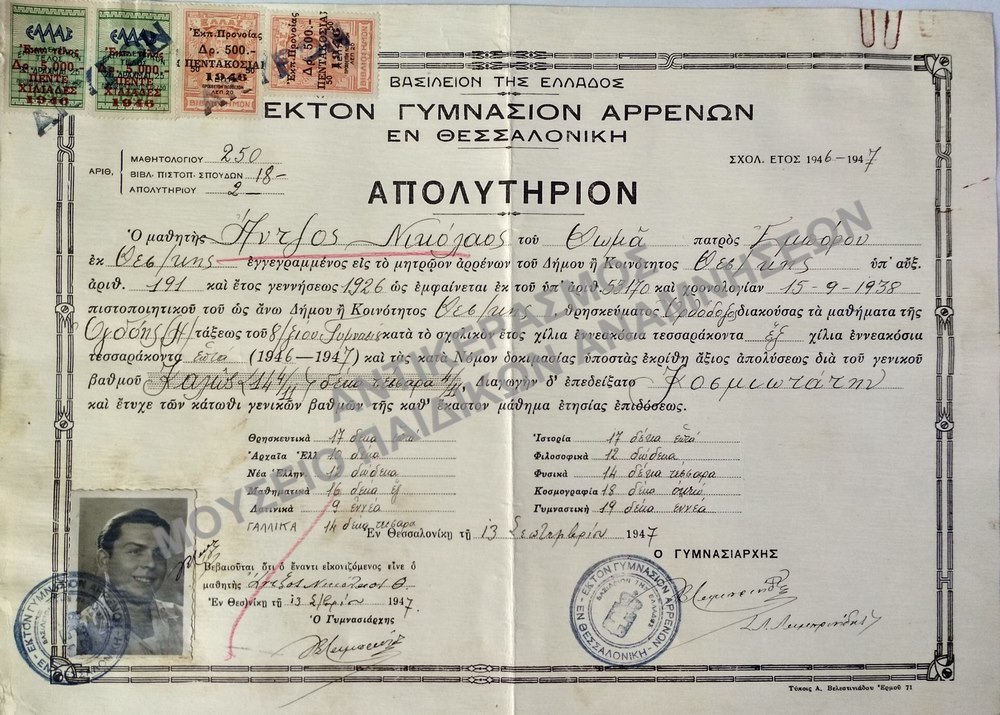 ΕΛΛΑΣ ΕΛΛΑΣ ΕΛΛΑΣ
Ἐκπ. Προνοίας Ἐκπ. Προνοίας
Δρ. 500.- Δρ. 500.-
ΠΕΝΤΑΚΟΣΙΑΙ ΠΕΝΤΑΚΟΣΙΑΙ
ΠΕΝΤΕ ΠΕΝΤΕ
ΧΙΛΙΑΔΕΣ ΧΙΛΙΑΔΕΣ
1946 1946 1946 1946
ΒΑΣΙΛΕΙΟΝ ΤΗΣ ΕΛΛΑΔΟΣ
ΕΚΤΟΝ ΓΥΜΝΑΣΙΟΝ ΑΡΡΕΝΩΝ
ΕΝ ΘΕΣΣΑΛΟΝΙΚΗ
ΑΡΙΘ.
ΜΑΘΗΤΟΛΟΓΙΟΥ 250
ΒΙΒΛ. ΠΙΣΤΟΠ. ΣΠΟΥΔΩΝ 18-
ΑΠΟΛΥΤΗΡΙΟΥ 2-
ΣΧΟΛ. ΕΤΟΣ 1946-1947
ΑΠΟΛΥΤΗΡΙΟΝ
Ὁ μαθητὴς Νικόλαος τοῦ Θωμᾶ πατρὸς
ἐκ Θεσ/κης ἐγγεγραμμένος εἰς τὸ μητρῷον ἀρρένων τοῦ Δήμου ἢ Κοινότητος Θεσ/κης ὑπ' αὔξ.
ἀριθ. 191 καὶ ἔτος γεννήσεως 1926 ὡς ἐμφαίνεται ἐκ τοῦ ὑπ' ἀριθ. 59170 καὶ χρονολογίαν 15-9-1938
πιστοποιητικοῦ τοῦ ὡς ἄνω Δήμου ἢ Κοινότητος Θεσ/κης, θρησκεύματος Ὀρθοδόξου διακούσας τὰ μαθήματα τῆς
Ὀγδόης Η' τάξεως τοῦ κατὰ τὸ σχολικὸν ἔτος χίλια ἐννεακόσια τεσσαράκοντα ἕξ χίλια ἐννεακόσια
τεσσαράκοντα ἑπτὰ (1946-1947) καὶ τὰς κατὰ Νόμον δοκιμασίας ὑποστὰς ἐκρίθη ἄξιος ἀπολύσεως διὰ τοῦ γενικοῦ
βαθμοῦ Καλῶς (14 4/11) δέκα τέσσαρα 4/11, Διαγωγὴν δ' ἐπεδείξατο Κοσμιωτάτην
καὶ ἔτυχε τῶν κάτωθι γενικῶν βαθμῶν τῆς καθ' ἕκαστον μάθημα ἐτησίας ἐπιδόσεως.
Θρησκευτικὰ 17 δέκα ἑπτά
Ἀρχαῖα Ἑλλ.
Νέα Ἑλλην. 12 δώδεκα
Μαθηματικὰ 16 δέκα ἕξ
Λατινικὰ 9 ἐννέα
ΓΑΛΛΙΚΑ 14 δέκα τέσσαρα
Ἱστορία 17 δέκα ἑπτά
Φιλοσοφικὰ 12 δώδεκα
Φυσικὰ 14 δέκα τέσσαρα
Κοσμογραφία 18 δέκα ὀκτώ
Γυμναστικὴ 19 δέκα ἐννέα
Ἐν Θεσσαλονίκῃ τῇ 13 Σεπτεμβρίου 1947
Ο ΓΥΜΝΑΣΙΑΡΧΗΣ
Βεβαιοῦται ὅτι ὁ ἔναντι εἰκονιζόμενος εἶνε ὁ
μαθητὴς Νικόλαος Θ.
Ἐν Θεσ)νίκῃ τῇ 13 Σ/βρίου 1947.
Ὁ Γυμνασιάρχης
ΕΚΤΟΝ ΓΥΜΝΑΣΙΟΝ ΑΡΡΕΝΩΝ
-ΕΝ ΘΕΣΣΑΛΟΝΙΚΗ-
ΒΑΣΙΛΕΙΟΝ ΤΗΣ ΕΛΛΑΔΟΣ
ΕΚΤΟΝ ΓΥΜΝΑΣΙΟΝ
Τύποις Α. Βελεστινιάδου Ἑρμοῦ 71
ΑΝΤΙΚΕΡΑΣΜΟΣ
ΜΟΥΣΕΙΟ ΠΑΙΔΙΚΩΝ ΑΝΑΜΝΗΣΕΩΝ